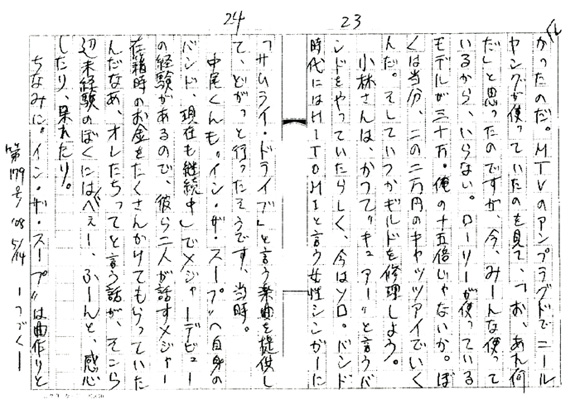 23
かったのだ。MTVのアンプラグドでニール
ヤングが使っていたのを見て、「お、あれ何
だ」と思ったのですが、今、みーんな使って
いるから、いらない。ローリーが使っている
モデルが三十万。俺の十五倍じゃないか。ぼ
くは当分、この二万円のキャッツアイでいく
んだ。そしていつかギルドを修理しよう。
小林さんは、かつて"キュアー"と言うバ
ンドをやっていたらしく、今はソロ。バンド
時代にはHITOMIと言う女性シンガーに
24
「サムライ・ドライブ」と言う楽曲を提供し
て、どがっと行ったそうです、当時。
中尾くんも。イン・ザ・スープ"へ自身の
バンド、現在も継続中)でメジャーデビュー
の経験があるので、彼ら二人が話すメジャー
在籍時のお金をたくさんかけてもらっていた
んだなあ、オレたちってと言う話が、そこら
辺未経験のぼくには「へえー、ふーんと、感心
したり、呆れたり。
ちなみに。イン・ザ・スープ"は曲作りと
第179号/'08 5/14 ーつづくー